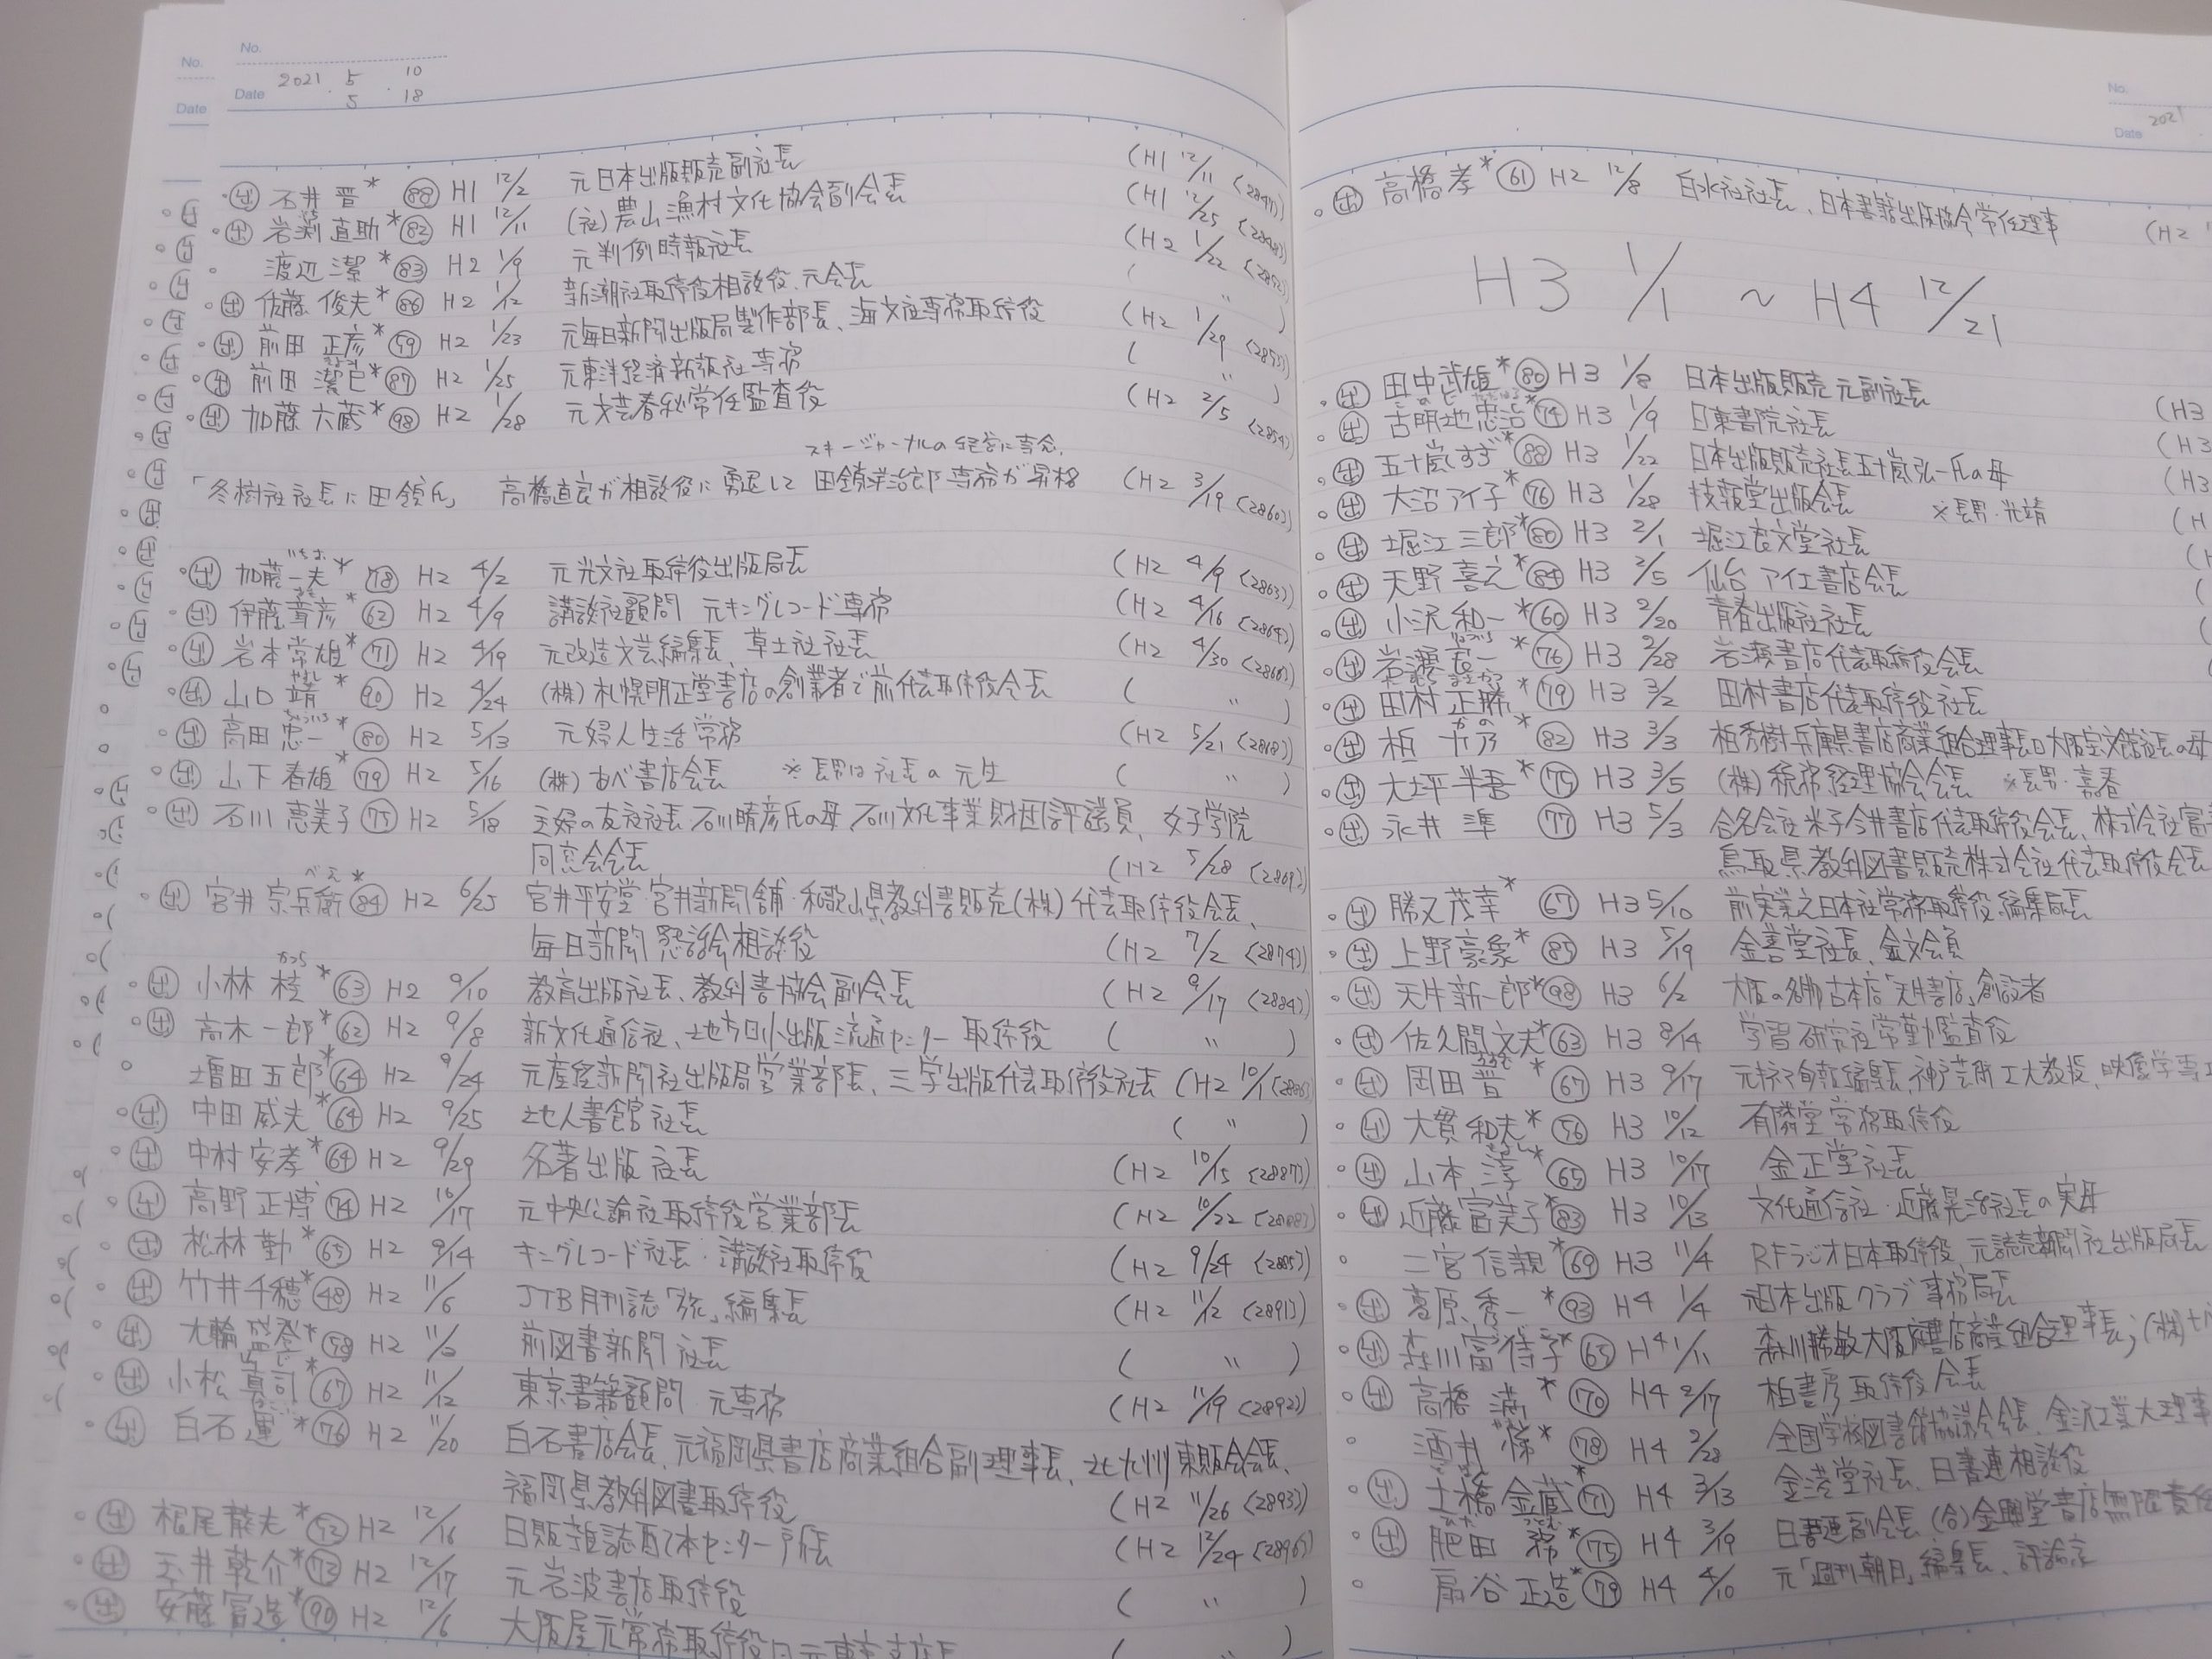 No.
Date 2021. 5 . 10
5 18
出 石井 晋* 88 H1 12/2 元日本出版販売副社長 (H1 12/11 <2847>)
出 岩渕直助* 82 H1 12/11 (社)農山漁村文化協会副会長 (H1 12/25 <2848>)
渡辺 潔* 83 H2 1/9 元判例時報社長 (H2 1/22 <2852>)
出 佐藤 俊夫* 86 H2 1/12 新潮社取締役相談役、元会長 ( 〃 )
出 前田 正彦* 59 H2 1/23 元毎日新聞出版局製作部長、海文社専務取締役 (H2 1/29 <2853>)
出 前田 * 87 H2 1/25 元東洋経済新報社専務 ( 〃 )
出 加藤 六蔵* 98 H2 1/28 元文芸春秋常任監査役 (H2 2/5 <2854>)
スキージャーナルの経営に専念、
「冬樹社社長に田鎖氏」 高橋直良が相談役に勇退して 田鎖洋治郎専務が昇格 (H2 3/19 <2860>)
出 加藤一夫* 78 H2 4/2 元光文社取締役出版局長 (H2 4/9 <2863>)
出 伊藤 彦* 62 H2 4/9 講談社顧問 元キングレコード専務 (H2 4/16 <2864>)
出 岩本常雄* 71 H2 4/19 元改造文芸編集長、草土社社長 (H2 4/30 <2866>)
出 山口 靖* 90 H2 4/24 (株)札幌明正堂書店の創業者で前代表取締役会長 ( 〃 )
出 高田 忠一* 80 H2 5/13 元婦人生活常務 (H2 5/21 <2868>)
出 山下春雄* 79 H2 5/16 (株)あべ書店会長 ※長男は社長の元生 ( 〃 )
出 石川 恵美子 75 H2 5/18 主婦の友社社長石川晴彦氏の母、石川文化事業財団評議員、女子学院
同窓会会長 (H2 5/28 <2869>)
出 宮井宗兵衛* 84 H2 6/25 宮井平安堂・宮井新聞舗・和歌山県教科書販売(株)代表取締役会長、
毎日新聞懇話会相談役 (H2 7/2 <2874>)
出 小林 桂* 63 H2 9/10 教育出版社長、教科書協会副会長 (H2 9/17 <2884>)
出 高木一郎* 62 H2 9/8 新文化通信社、地方・小出版流通センター取締役 ( 〃 )
増田五郎* 64 H2 9/24 元産経新聞社出版局営業部長、三学出版代表取締役社長 (H2 10/1 <2886>)
出 中田威夫* 64 H2 9/25 地人書館社長 ( 〃 )
出 中村安孝* 64 H2 9/29 名著出版社長 (H2 10/15 <2887>)
出 高野正博 74 H2 10/17 元中央公論社取締役営業部長 (H2 10/22 <2888>)
出 松林 勤* 65 H2 9/14 キングレコード社長・講談社取締役 (H2 9/24 <2885>)
出 竹井千穂* 48 H2 11/6 JTB月刊誌「旅」編集長 (H2 11/12 <2891>)
出 大輪盛登* 58 H2 11/ 前図書新聞社長 ( 〃 )
出 小松 真司* 67 H2 11/12 東京書籍顧問 元専務 (H2 11/19 <2892>)
出 白石 運* 76 H2 11/20 白石書店会長、元福岡県書店商業組合副理事長、北九州東販会会長、
福岡県教科図書取締役 (H2 11/26 <2893>)
出 根尾 夫* 52 H2 12/16 日販雑誌 センター所長 (H2 12/24 <2896>)
出 玉井乾介* 72 H2 12/17 元岩波書店取締役 ( 〃 )
出 安藤富造* 90 H2 12/6 大阪屋元常務取締役 元東京支店長 ( 〃 )
No.
Date 2021
出 高橋 孝* 61 H2 12/8 白水社社長、日本書籍出版協会常任理事 (H2
H3 1/1 〜 H4 12/21
出 田中武雄* 80 H3 1/8 日本出版販売 元副社長
出 古明地忠治* 74 H3 1/9 日東書院社長 (H3
出 五十嵐すぎ* 88 H3 1/22 日本出版販売社長五十嵐弘一氏の母 (H3
出 大沼アイ子* 76 H3 1/28 技報堂出版会長 ※長男・光靖 (H3
出 堀江三郎* 80 H3 2/1 堀江良文堂社長 (H
出 天野喜之* 84 H3 2/5 仙台 アイエ書店会長 (H
出 小沢和一* 60 H3 2/20 青春出版社社長 (
出 岩瀬 一* 76 H3 2/28 岩瀬書店代表取締役会長 (
出 田村正勝* 79 H3 3/2 田村書店代表取締役社長
出 栢 乃* 82 H3 3/3 栢秀樹兵庫県書店商業組合理事長 大阪宝文館社長の母
出 大坪半吾* 75 H3 3/5 (株)税務経理協会会長 ※長男・嘉春
出 永井 準 77 H3 5/3 合名会社米子今井書店代表取締役会長、株式会社富
鳥取県教科図書販売株式会社代表取締役会長
出 勝又茂幸* 67 H3 5/10 前実業之日本社常務取締役編集局長
出 上野豪象* 85 H3 5/19 金善堂社長、金文会員
出 天牛新一郎* 98 H3 6/2 大阪の名物古本店「天牛書店」創設者
出 佐久間文夫* 63 H3 8/14 学習研究社常勤監査役
出 岡田 晋* 67 H3 9/17 元キネマ旬報編集長、神戸芸術工大教授、映像学専攻
出 大貫和夫* 56 H3 10/12 有隣堂常務取締役
出 山本 淳* 65 H3 10/17 金正堂社長
出 近藤富美子* 83 H3 10/13 文化通信社・近藤晃治社長の実母
二宮信親* 69 H3 11/4 RFラジオ日本取締役 元読売新聞社出版局長
出 葛原 秀一* 93 H4 1/4 元日本出版クラブ事務局長
出 森川富待子* 65 H4 1/11 森川勝敏大阪府書店商業組合理事長;(株)
出 高橋 満* 70 H4 2/17 柏書房取締役会長
酒井 悌* 78 H4 2/28 全国学校図書館協議会会長、金沢工業大理事
出 土橋金蔵* 71 H4 3/13 金港堂社長、日書連相談役
出 肥田 * 75 H4 3/19 日書連副会長、(合)金興堂書店無限責任
扇谷正造* 79 H4 4/10 元「週刊朝日」編集長、評論家